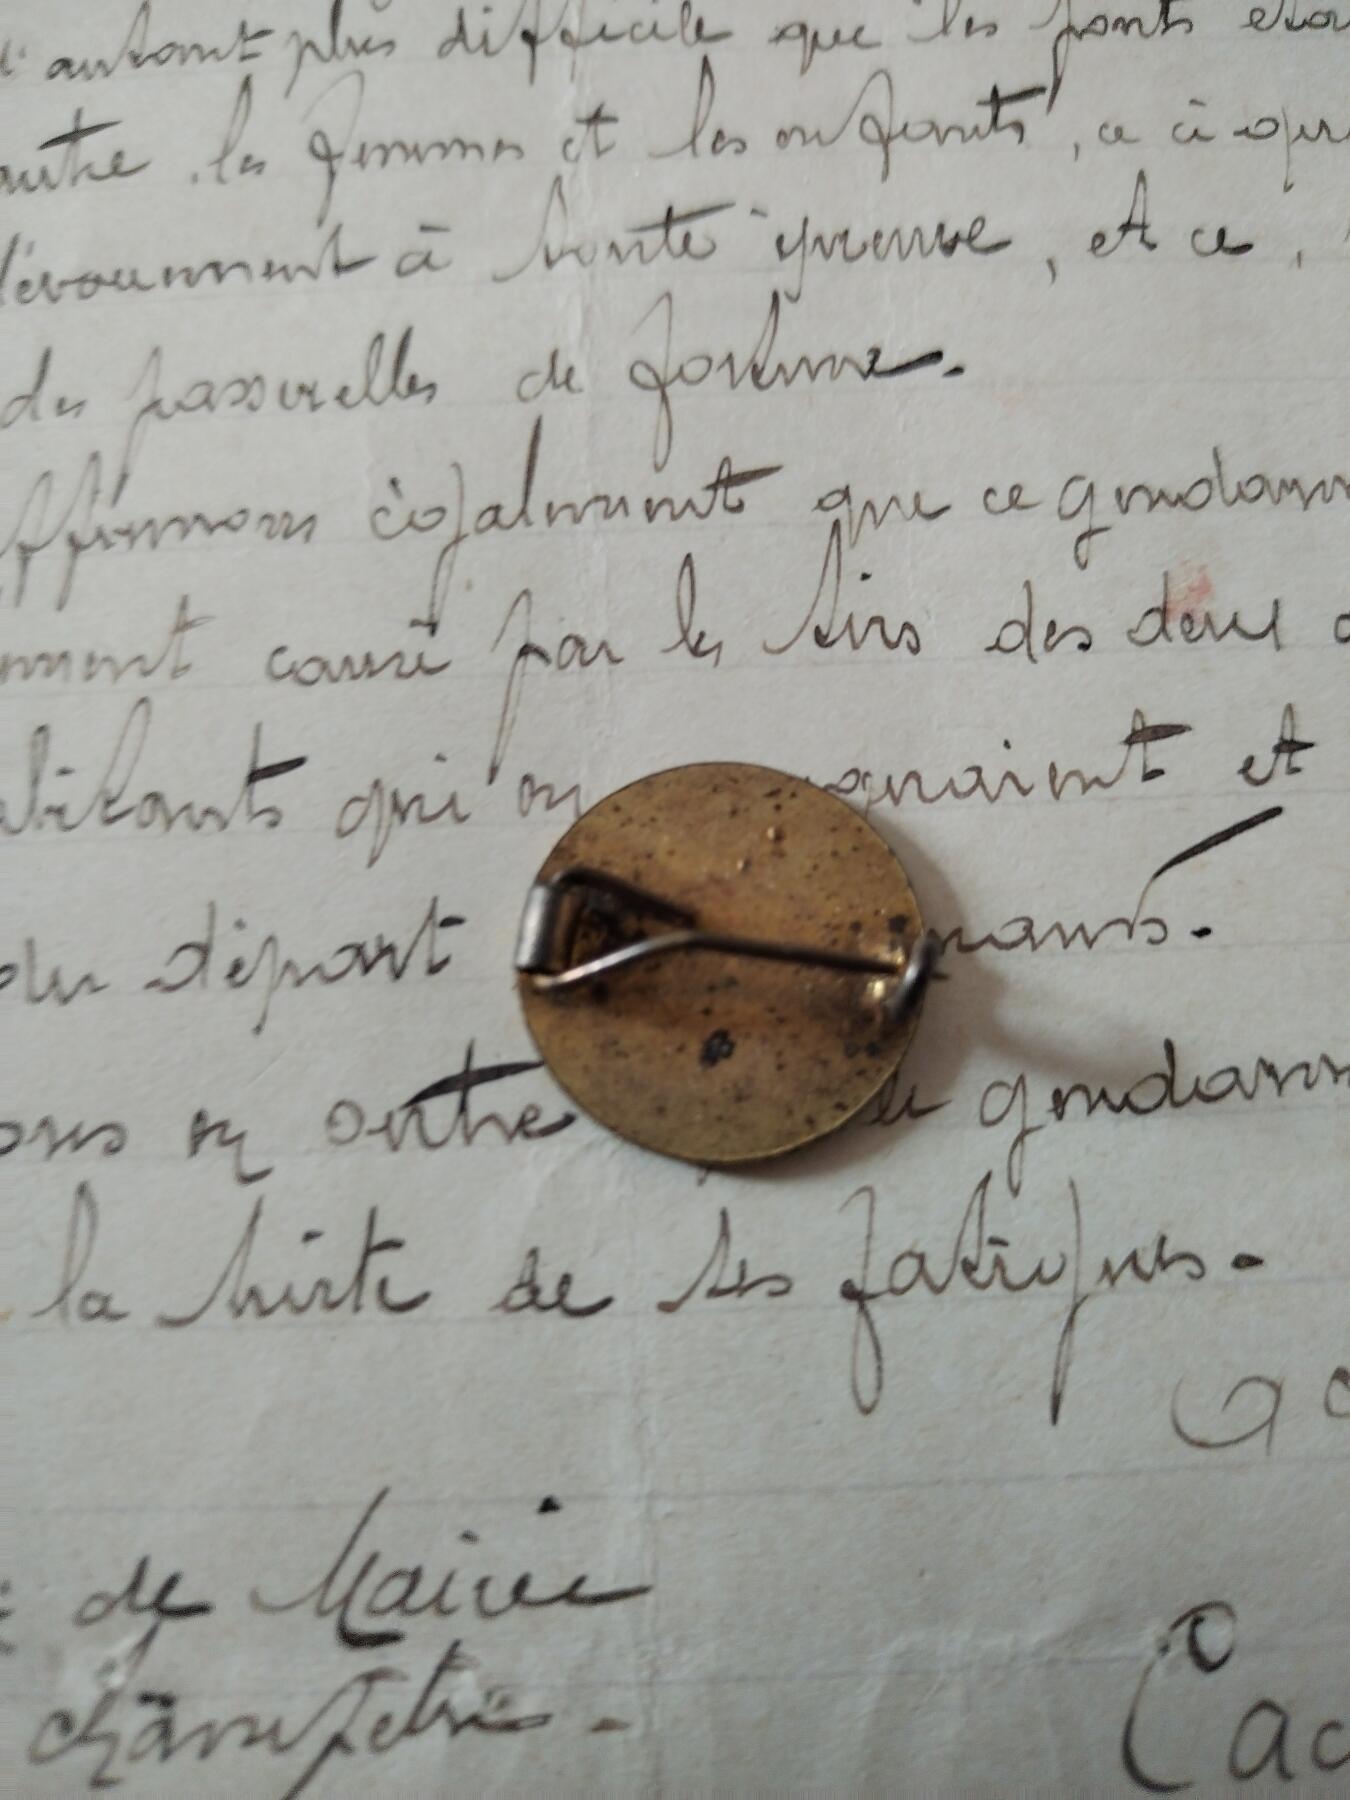 d'autant plus difficile que les ponts étai
autre, les femmes et les enfants, ce ci que
dévouement à toute épreuve, et ce,
des passerelles de fortune.
affirmons également que ce gendarm
ement causé par les tirs des deux
abitants qui en et
du départ
ons en outre le gendarm
la suite de ses fatigues.
de Mairie
champêtre.
Cac